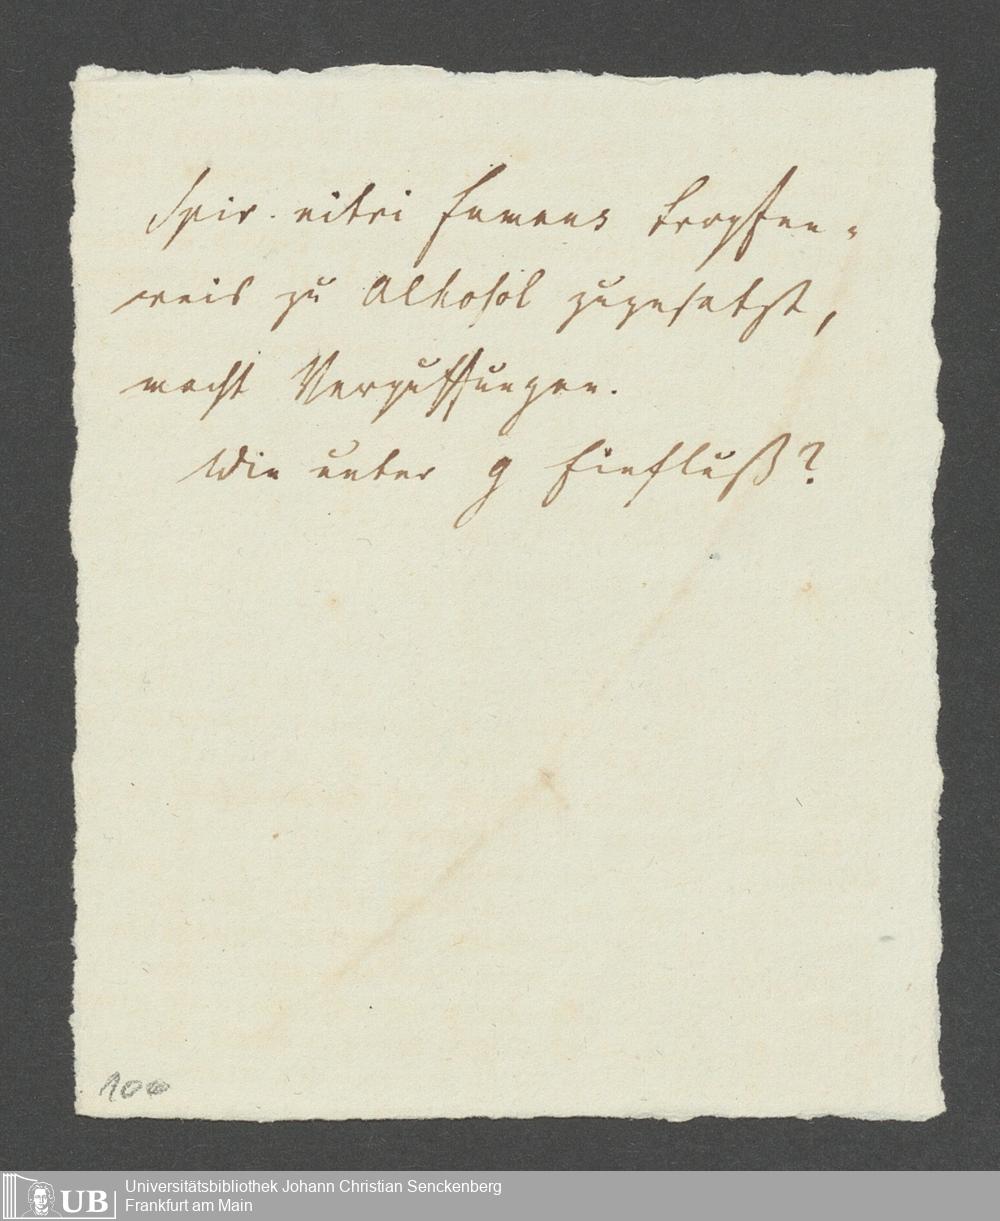 Spir. nitri fumans tropfen-
weis zu Alkohol zugesetzt,
macht Verpuffungen.
Wie unter g Einfluß?
100
UB
Universitätsbibliothek Johann Christian Senckenberg
Frankfurt am Main